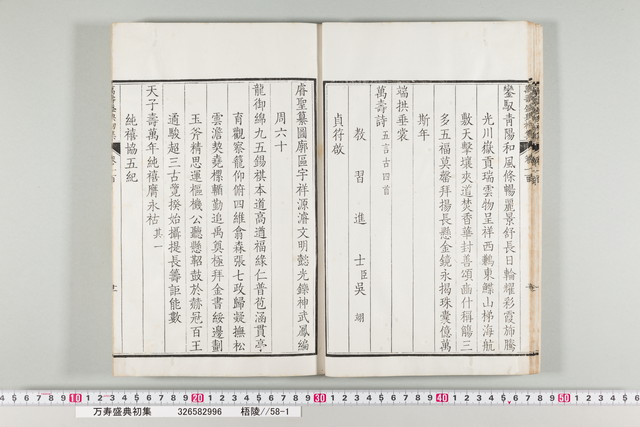 鑾馭青陽和風條暢麗景舒長日輪耀彩霞斾騰
光川嶽貢瑞雲物呈祥西鶼東鰈山梯海航
敷天擊壤夾道焚香華封善頌曲什稱觴三
多五福莫罄拜揚長懸金鏡永揭珠囊億萬
斯年
端拱垂裳
萬壽詩 五言古四首
教習進士臣吳翊
貞符啟
睿聖纂圖廓區宇祥源濬文明懿光鑠神武鳳編
周六十
龍御綿九五錫祺本道高遒福緣仁普苞涵貫亭
育觀察籠仰俯四維翕森張七政歸凝撫松
雲澹爕堯樏輴勤追禹奠極拜金書綏邊劃
玉斧精思運樞機公聽懸鞀鼓於赫冠百王
通駿超三古覽揆始攝提長籌詎能數
天子壽萬年純禧膺永祜 其一
純禧協五紀
10 20 30 40 50
万寿盛典初集 326582996 梧陵//58-1